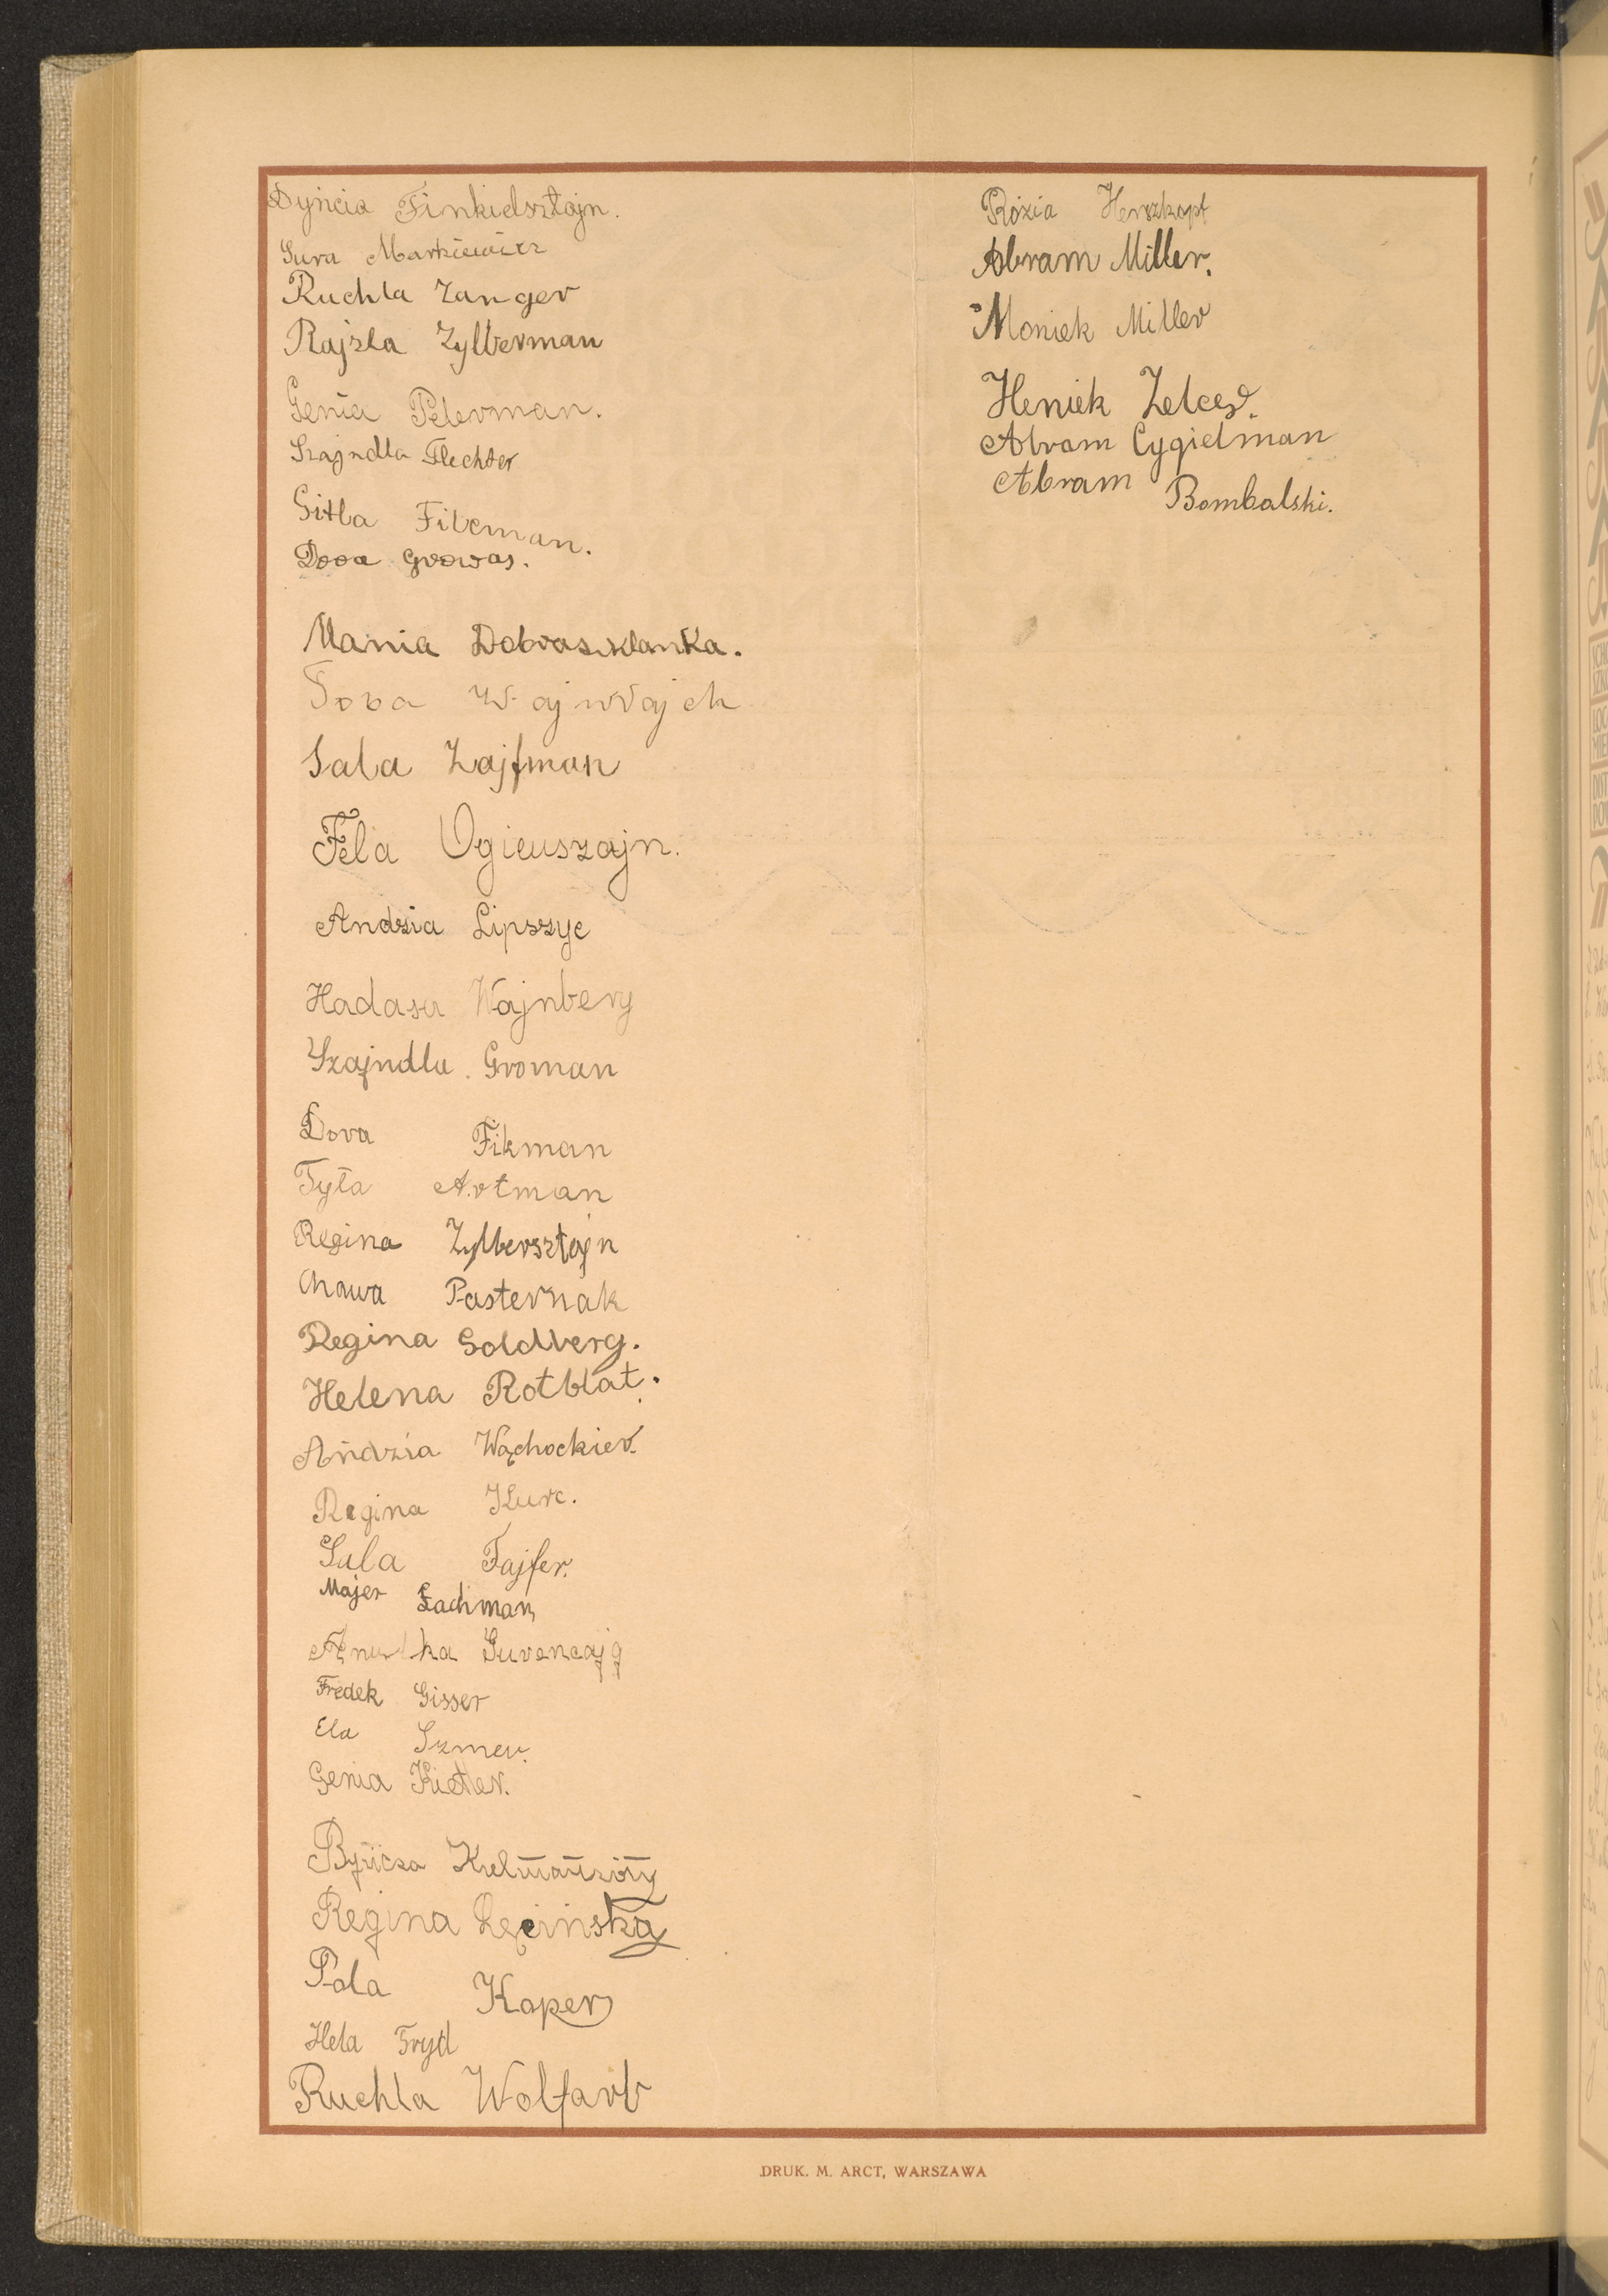 Dyńcia Finkielsztajn.
Sura Markiewicz
Ruchla Zanger
Rajzla Zylberman
Genia Pelerman.
Szajndla Flechter
Gitla Fileman.
Dora Growas.
Mania Dobraszklanka.
Toba Wajnrajch
Sala Zajfman
Fela Ogieuszajn.
Andzia Lipszyc
Hadasa Wajnberg
Szajndla Groman
Dora Fikman
Tyla Artman
Regina Zylbersztajn
Chawa Pasternak
Regina Goldberg.
Helena Rotblat.
Andzia Wąchockier.
Regina Kurc.
Sala Fajfer.
Majer Lachman
Surencajg
Fredek Gisser
Ela Szmer.
Genia
Kielmanzon
Regina
Pola Koper
Hela Fryd
Ruchla Wolfarb
Rózia Herszkopf
Abram Miller.
Moniek Miller
Heniek Zelcer.
Abram Cygielman
Abram Bombalski.
DRUK. M. ARCT, WARSZAWA